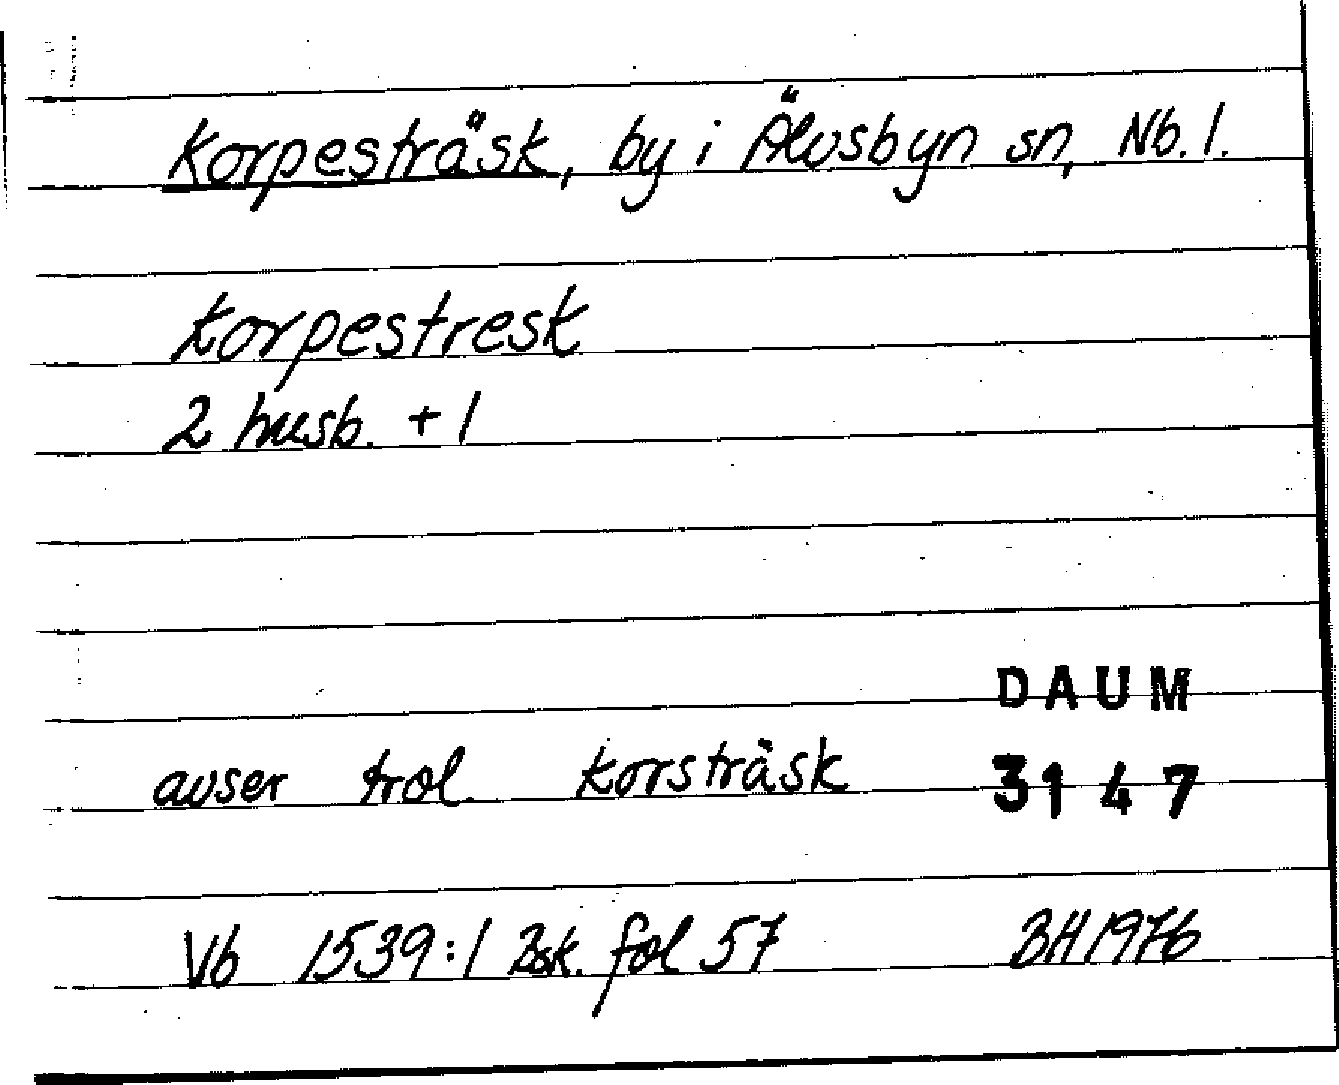 Korpesträsk, by i Älvsbyn sn, Nb. l.
Korpestresk
2 husb. + 1
DAUM
avser trol. Korsträsk
3147
Vb 1539:1 Bsk. fol 57 BH 1976